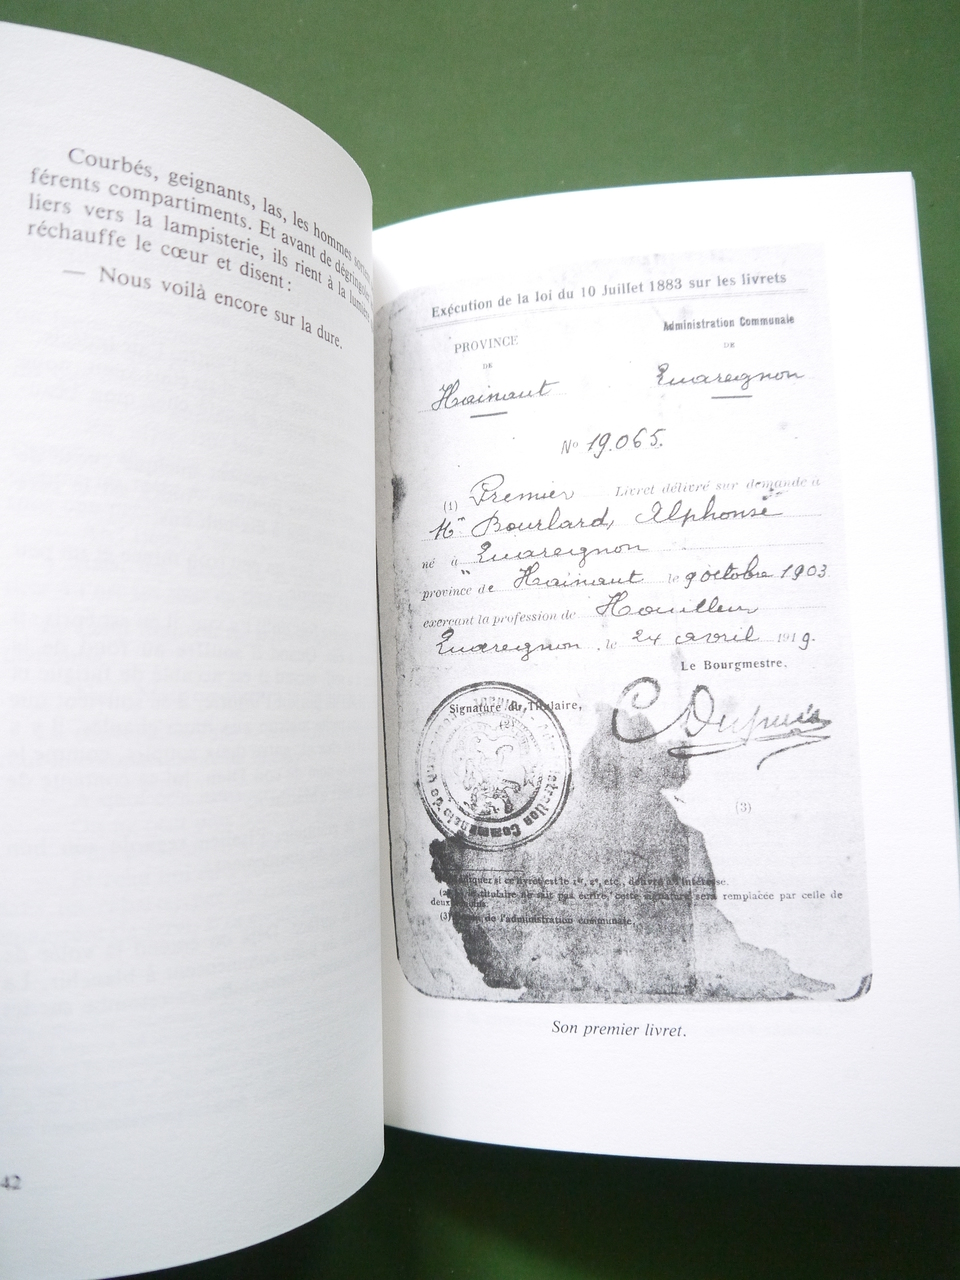 Courbés, geignants, las, les hommes sortent
férents compartiments. Et avant de dégringoler
liers vers la lampisterie, ils rient à la lumière
réchauffe le cœur et disent :
— Nous voilà encore sur la dure.
42
Exécution de la loi du 10 Juillet 1883 sur les livrets
PROVINCE
DE
Hainaut
Administration Communale
DE
Quaregnon
No 19.065.
(1) Premier Livret délivré sur demande à
Mr Bourlard, Alphonse
né à Quaregnon
province de Hainaut le 9 octobre 1903
exerçant la profession de Houilleur
Quaregnon, le 24 avril 1919.
Le Bourgmestre.
Signature du Titulaire,
(2)
C Dupuis
(3)
si ce livret est le 1er, 2e, etc., délivré à l'intéressé.
(2) Si le titulaire ne sait pas écrire, cette signature sera remplacée par celle de
deux témoins.
(3) de l'administration communale.
Son premier livret.